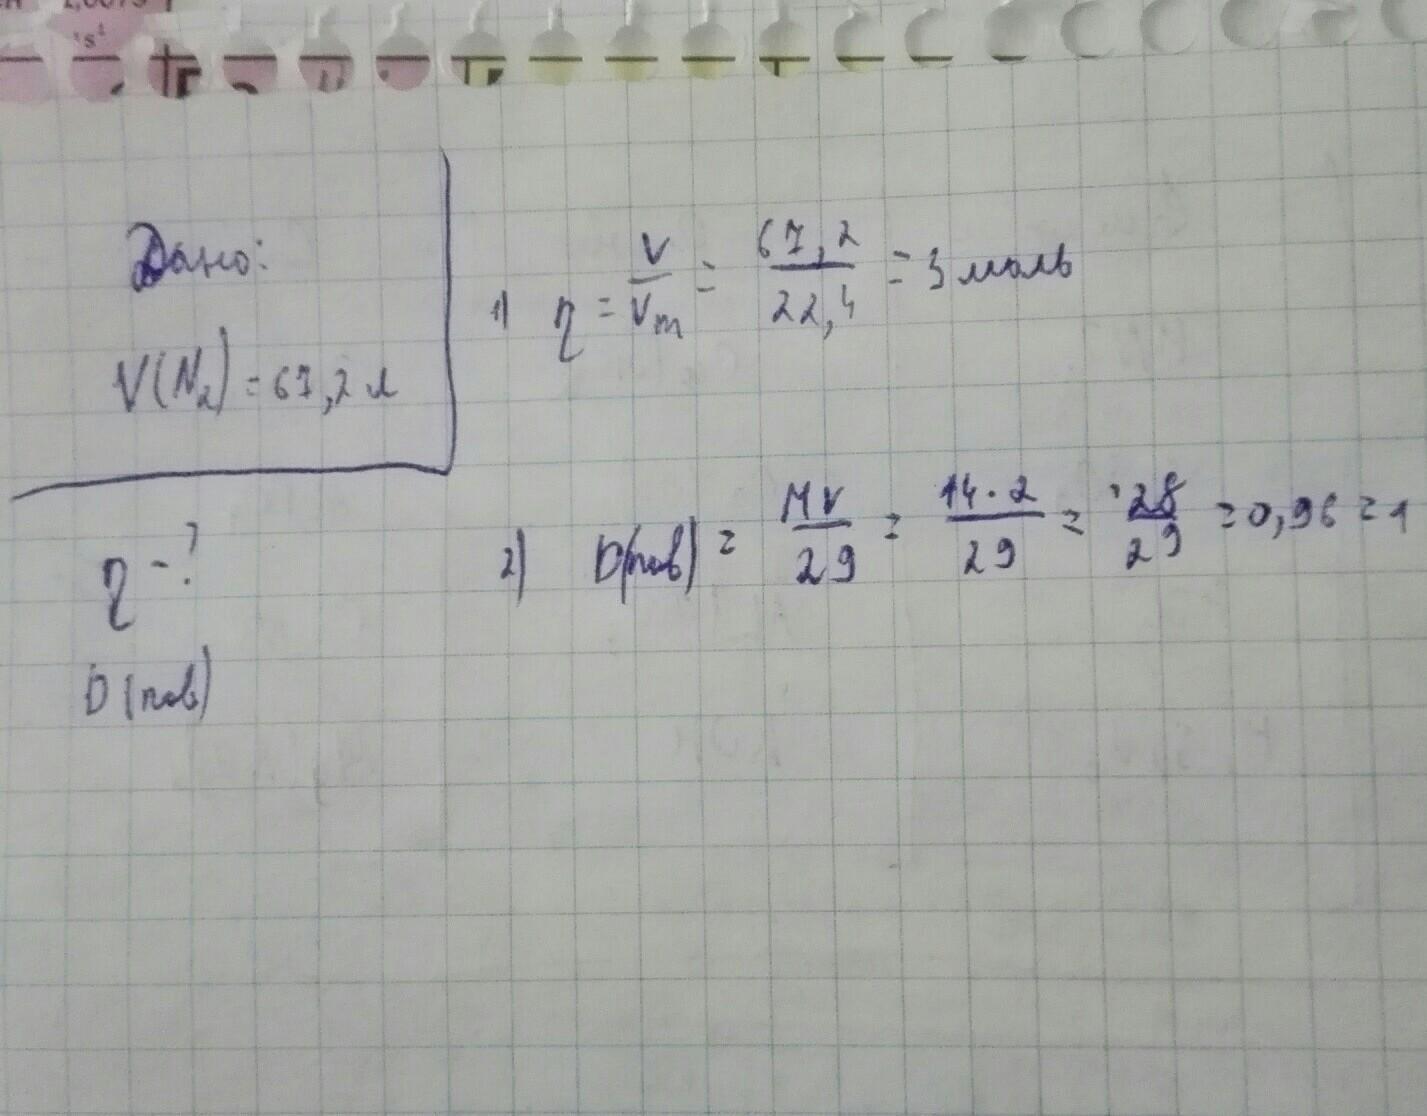 's¹
Дано:
V(N₂) = 67,2 л
η - ?
D(пов)
1) η = V/Vm = 67,2/22,4 = 3 моль
2) D(пов) = Mr/29 = 14·2/29 = 28/29 = 0,96 = 1